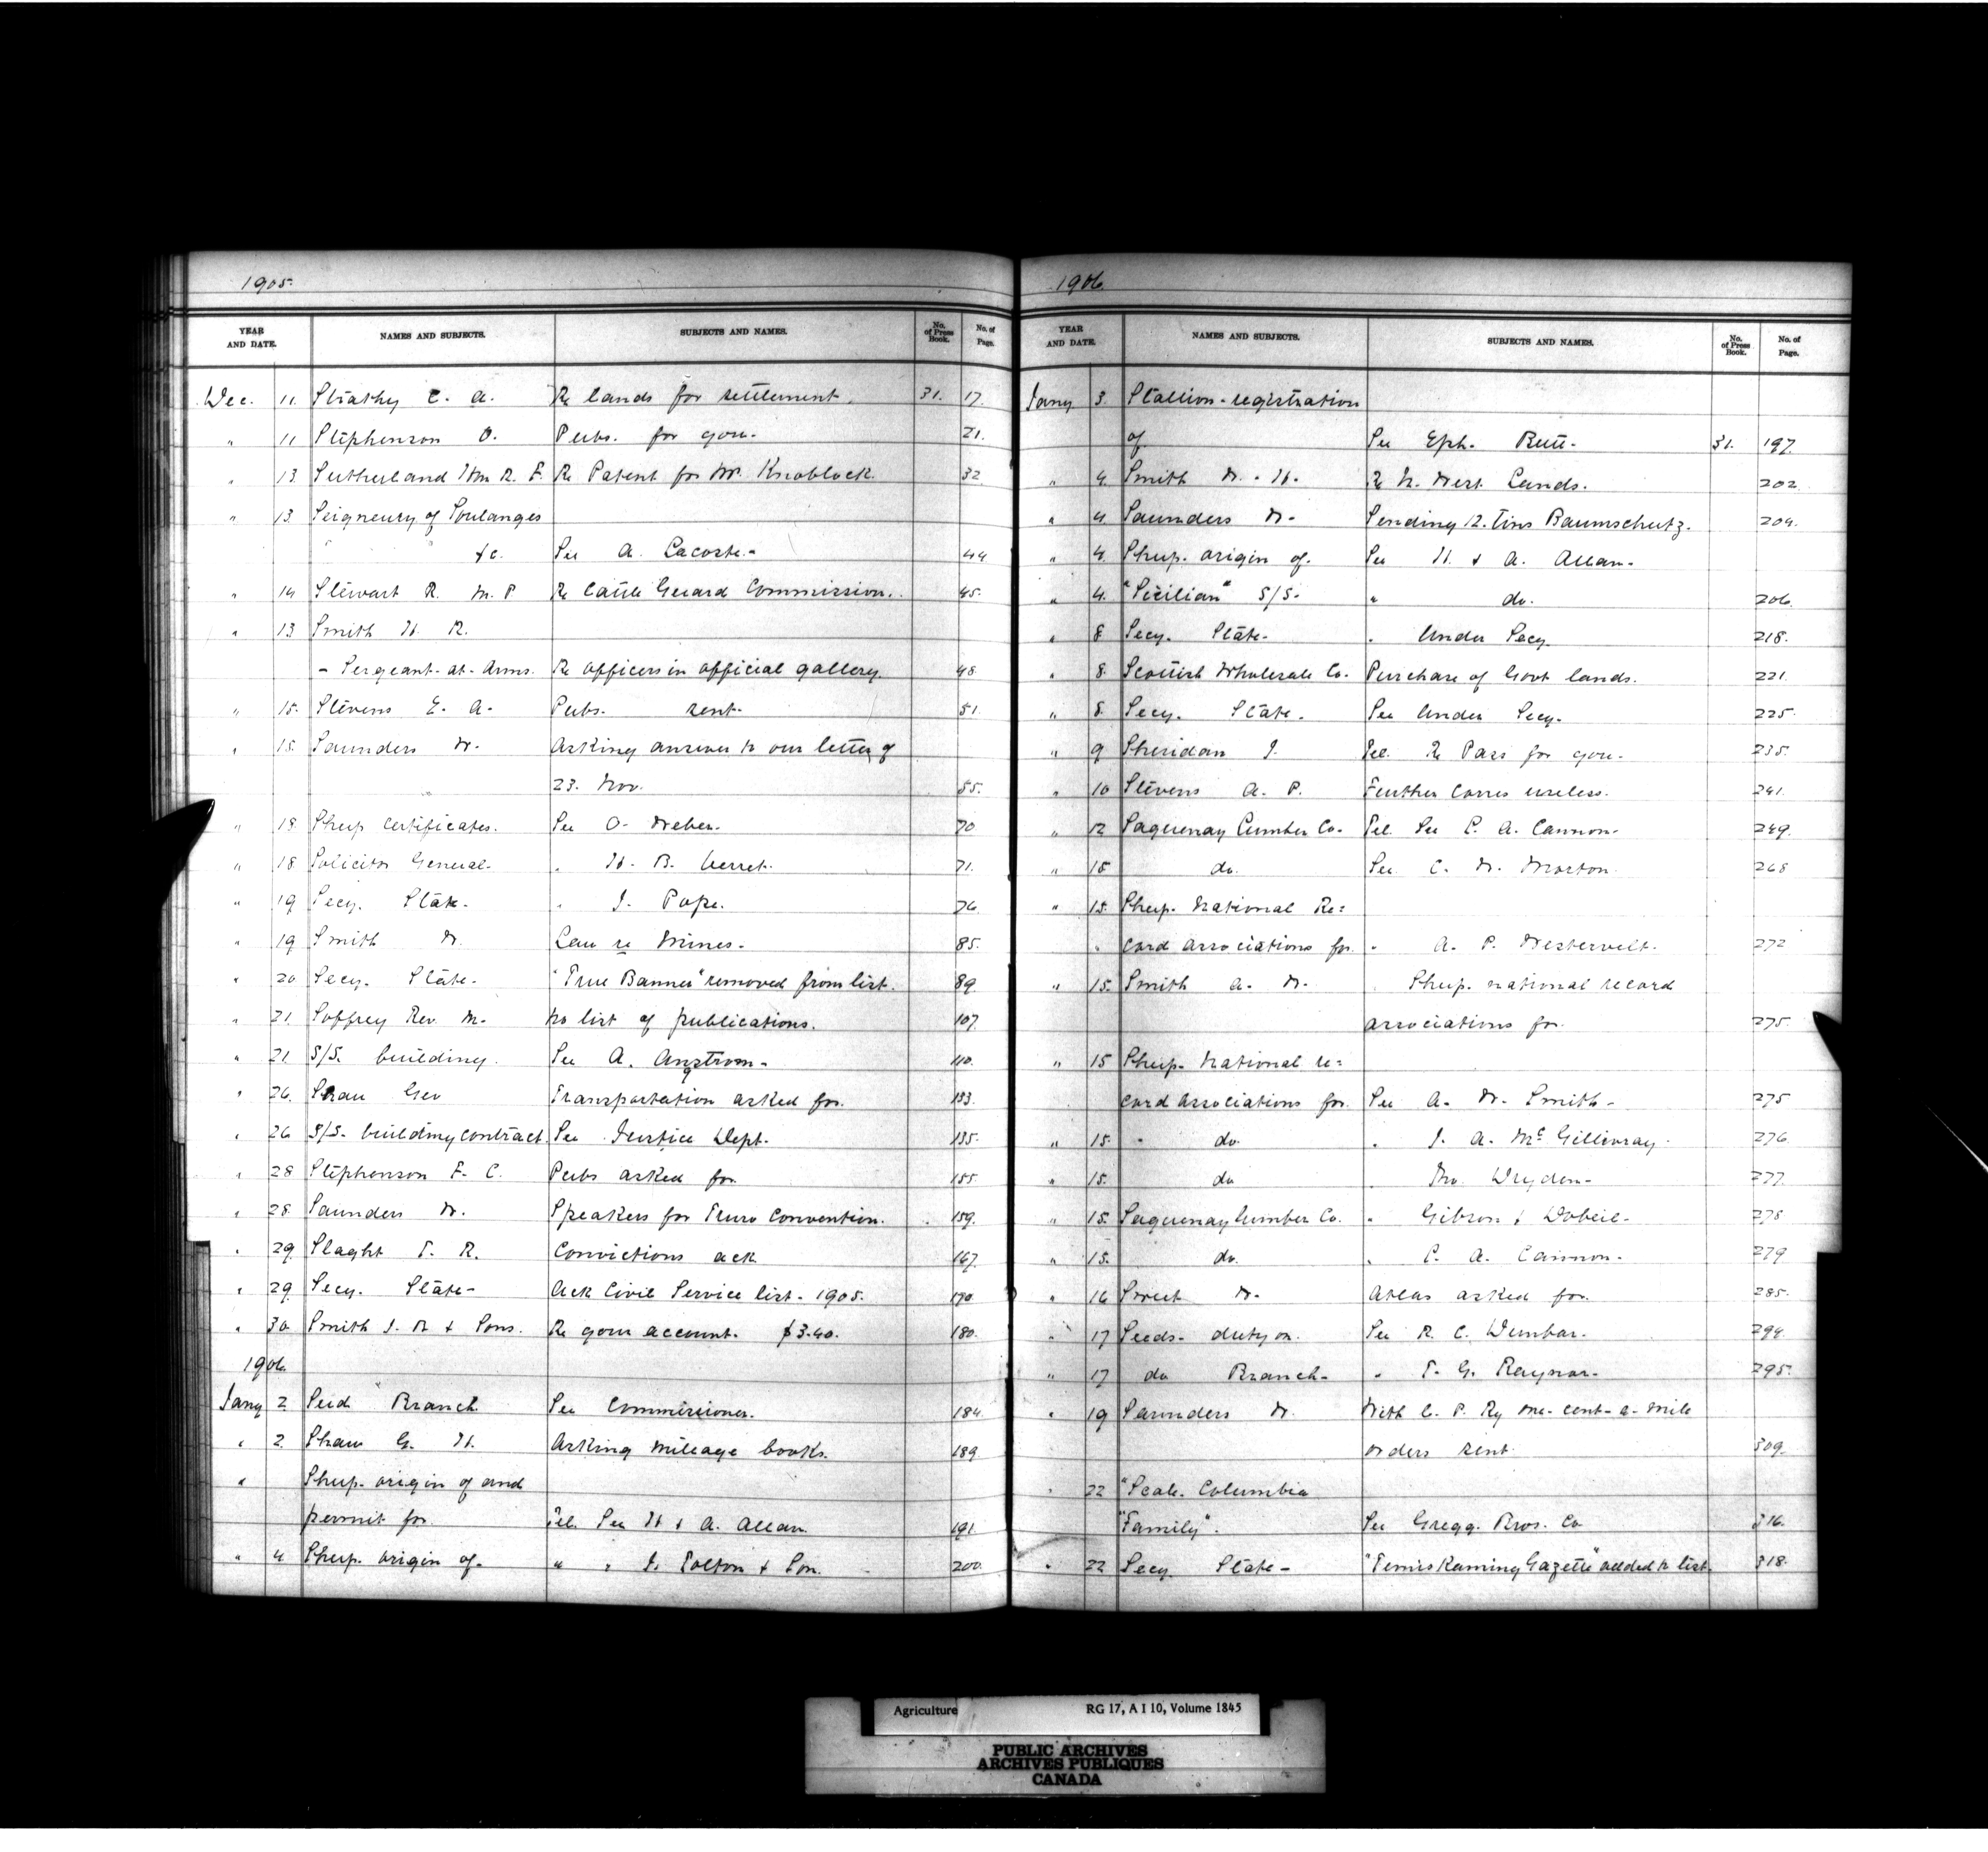 1905.
YEAR AND DATE. NAMES AND SUBJECTS. SUBJECTS AND NAMES. No. of Press Book. No. of Page.
Dec. 11. Strathy E. A. Re lands for settlement. 31. 17.
" 11 Stephenson O. Pubs. for you. 21.
" 13. Sutherland Wm R. F. Re Patent for Mr. Knoblock. 32.
" 13. Seigneury of Soulanges
&c. See A. Lacoste. 44
" 14 Stewart R. M. P Re Cattle Guard Commission. 45.
" 13 Smith H. R.
- Sergeant-at-Arms. Re officers in official gallery. 48.
" 15. Stevens E. A. Pubs. sent. 51.
" 15. Saunders W. Asking answer to our letter of
23. Nov. 55.
" 18. Sheep certificates. See O. Weber. 70
" 18 Solicitor General. " H. B. Verret. 71.
" 19 Secy. State. " J. Pope. 76.
" 19 Smith W. Law re Mines. 85.
" 20 Secy. State. "True Banner" removed from list. 89.
" 21. Soffrey Rev. M. No list of publications. 107.
" 21. S/S. building. See A. Angstrom. 110.
" 26. Shaw Geo Transportation asked for. 133.
" 26 S/S. building contract. See Justice Dept. 135.
" 28 Stephenson F. C. Pubs asked for. 155.
" 28. Saunders W. Speakers for Truro Convention. 159.
" 29. Slaght T. R. Convictions ack. 167.
" 29 Secy. State - Ack Civil Service list - 1905. 170.
" 30. Smith J. R & Sons. Re your account. $3.40. 180.
1906.
Jany 2. Seed Branch See Commissioner. 184.
" 2. Shaw G. H. Asking mileage books. 189
" Sheep. origin of and
permit for. Tel. See H & A. Allan. 191.
" 4 Sheep. origin of. " " J. Tolton & Son. 200.
1906.
YEAR AND DATE. NAMES AND SUBJECTS. SUBJECTS AND NAMES. No. of Press Book. No. of Page.
Jany 3. Stallion-registration
of. See Eph. Butt. 31. 197.
" 4. Smith W. H. Re N. West Lands. 202.
" 4. Saunders W. Sending 12. Tins Baumschutz. 204.
" 4. Sheep. origin of. See H. & A. Allan.
" 4. "Sicilian" S/S. " do. 206.
" 8 Secy. State. " Under Secy. 218.
" 8. Scottish Wholesale Co. Purchase of Govt lands. 221.
" 8. Secy. State. See Under Secy. 225.
" 9 Sheridan J. Tel. Re Pass for you. 235.
" 10 Stevens A. P. Further corres useless. 241.
" 12 Saguenay Lumber Co. Tel. See L. A. Cannon. 249.
" 15 do. See C. W. Morton. 268
" 15. Sheep. National Re=
" cord associations for. " A. P. Westervelt. 272
" 15. Smith A. W. " Sheep. national record
associations for. 275.
" 15 Sheep. National re=
cord associations for. See A. W. Smith. 275
" 15. " do. " J. A. McGillivray. 276.
" 15. do " Jno. Dryden. 277.
" 15. Saguenay Lumber Co. " Gibson & Dobell. 278
" 15. do. " L. A. Cannon. 279
" 16 Sweet W. Atlas asked for. 285.
" 17 Seeds. duty on. See R. C. Dunbar. 294.
" 17 do Branch. " T. G. Raynor. 295.
" 19 Saunders W. With C. P. Ry one-cent-a-mile
orders sent. 309.
" 22 "Scale. Columbia
"Family". See Gregg. Bros. Co 316.
" 22 Secy State - "Temiskaming Gazette" added to list. 318.
Agriculture RG 17, A I 10, Volume 1845
PUBLIC ARCHIVES
ARCHIVES PUBLIQUES
CANADA